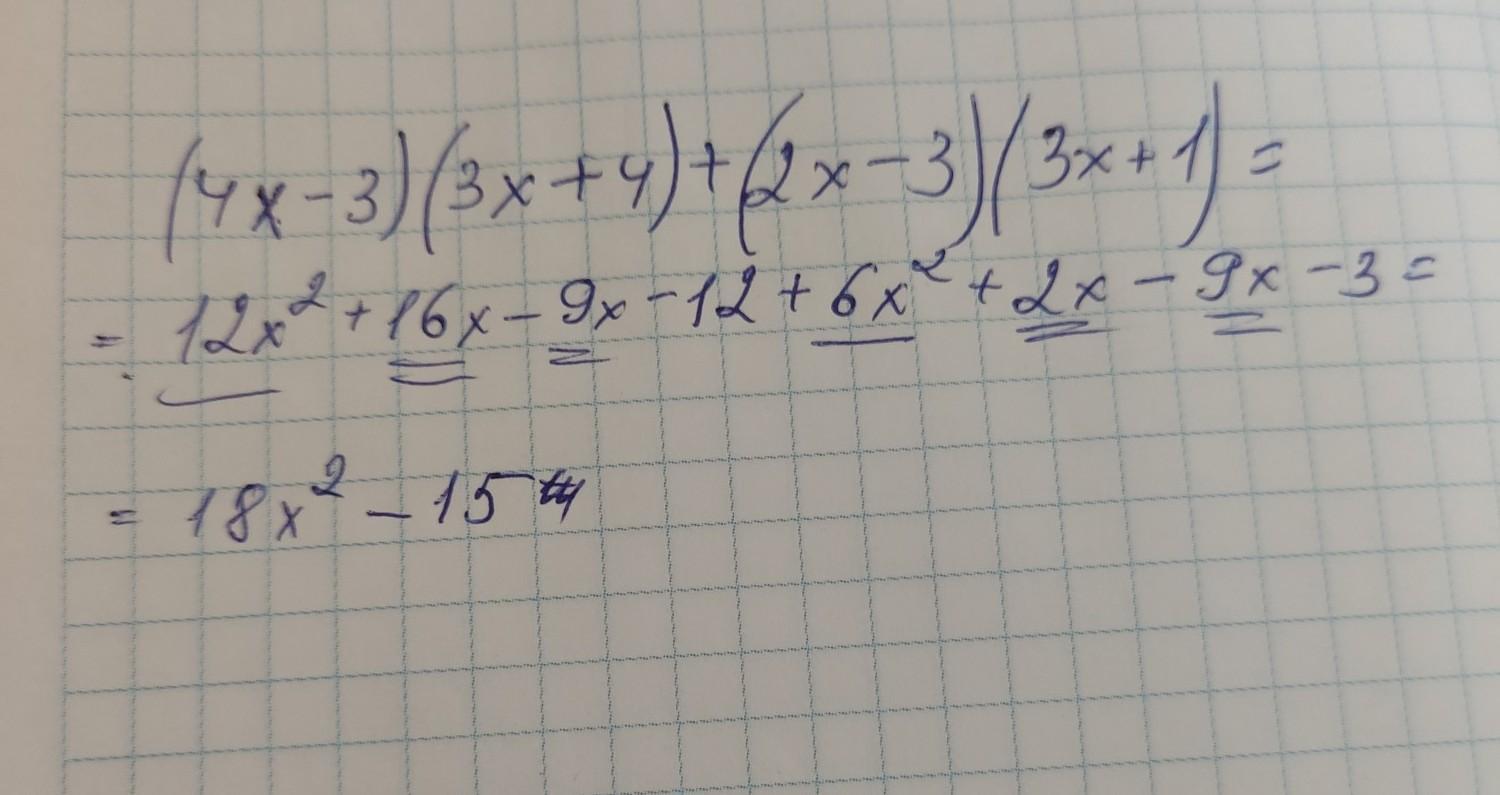 (4x-3)(3x+4)+(2x-3)(3x+1)=
= 12x²+16x-9x-12+6x²+2x-9x-3=
= 18x²-15